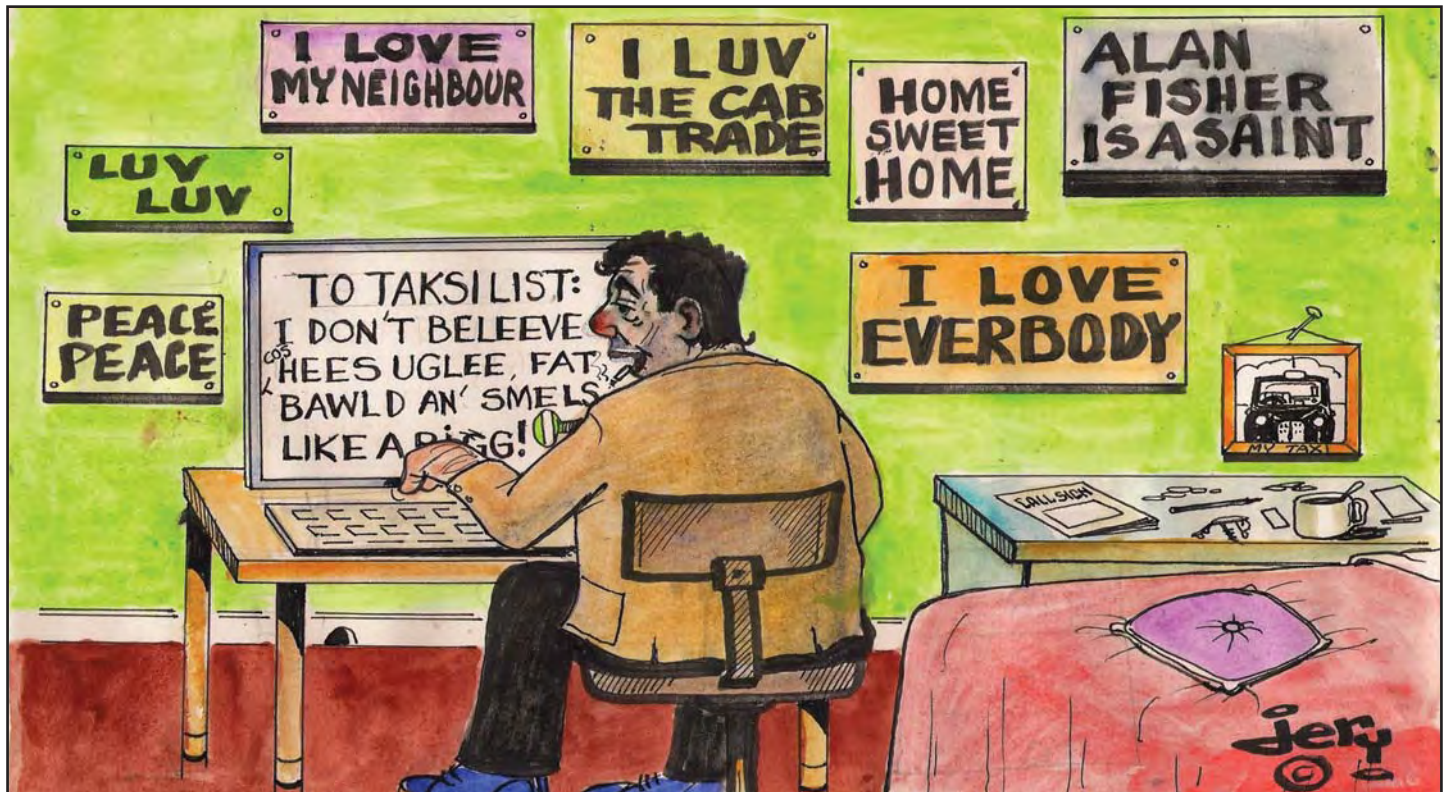 I LOVE
MY NEIGHBOUR
I LUV
THE CAB
TRADE
HOME
SWEET
HOME
ALAN
FISHER
IS A SAINT
LUV
LUV
PEACE
PEACE
TO TAKSI LIST:
I DON'T BELEEVE
COS
HEES UGLEE, FAT,
BAWLD AN' SMELS
LIKE A PIGG!
I LOVE
EVERBODY
MY TAXI
CALL SIGN
jery
©